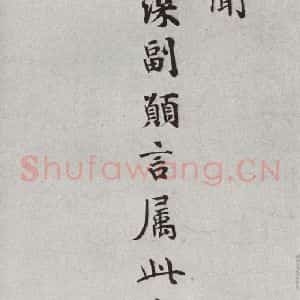 聞
深副顛言属此
Shufawang.CN